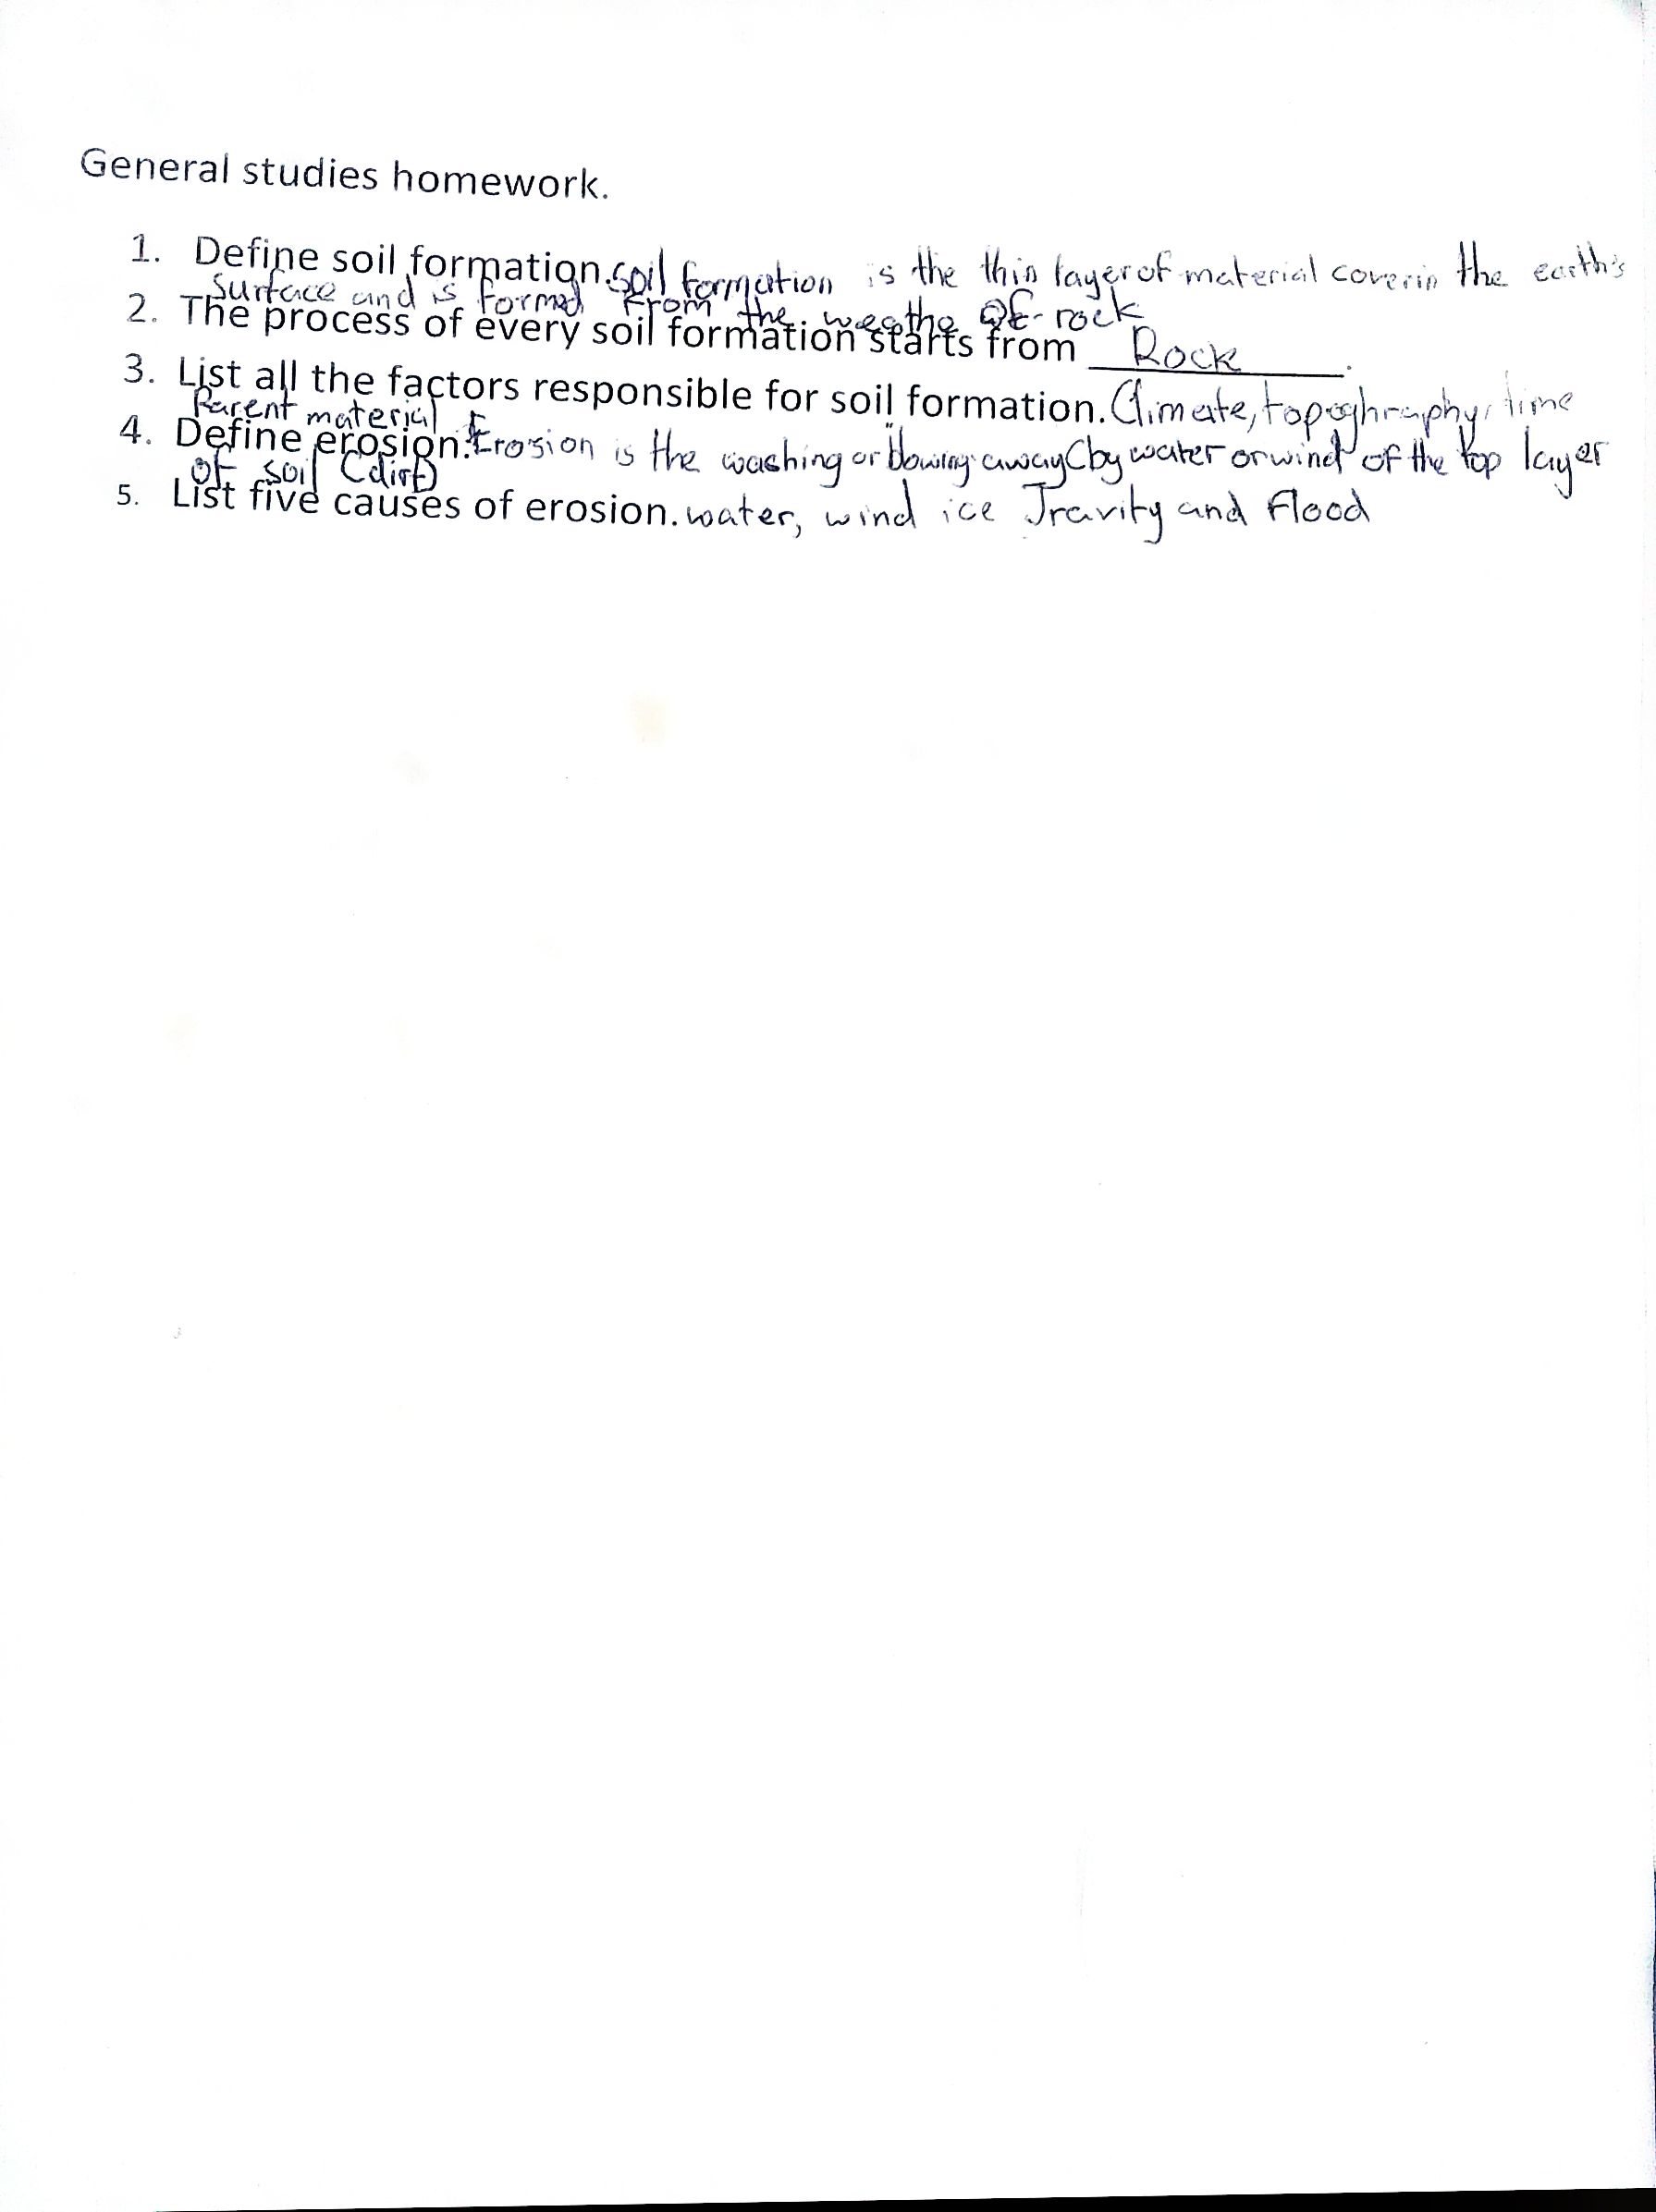 General studies homework.
1. Define soil formation. Soil formation is the thin layer of material coverin the earth's
surface and is formed from the weathe of rock
2. The process of every soil formation starts from Rock.
3. List all the factors responsible for soil formation. Climate, topoghraphy, time
Parent material
4. Define erosion. Erosion is the washing or blowing away (by water or wind of the top layer
of soil (dirt)
5. List five causes of erosion. water, wind ice Travity and flood